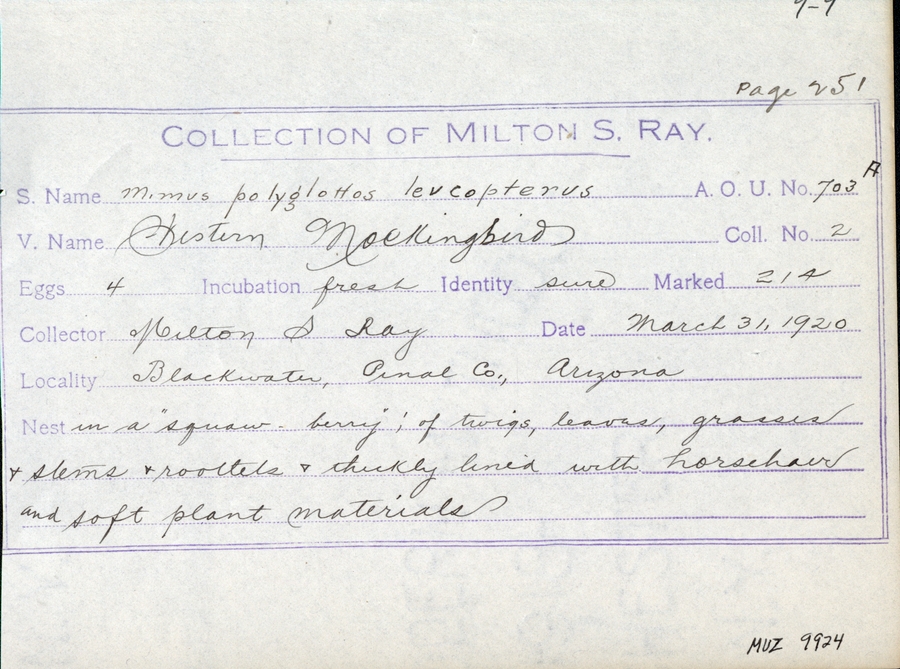 9-9
Page 251
COLLECTION OF MILTON S. RAY.
S. Name Mimus polyglottos leucopterus A. O. U. No. 703 A
V. Name Western Mockingbird Coll. No. 2
Eggs 4 Incubation fresh Identity sure Marked 214
Collector Milton S Ray Date March 31, 1920
Locality Blackwater, Pinal Co., Arizona
Nest in a "squaw-berry"; of twigs, leaves, grasses
& stems & rootlets & thickly lined with horsehair
and soft plant materials
MVZ 9924